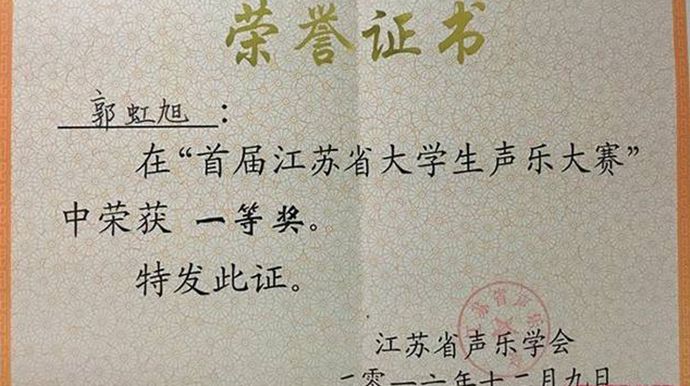 荣誉证书
郭虹旭：
在“首届江苏省大学生声乐大赛”
中荣获 一等奖。
特发此证。
江苏省声乐
江苏省声乐学会
二零一六年十二月九日